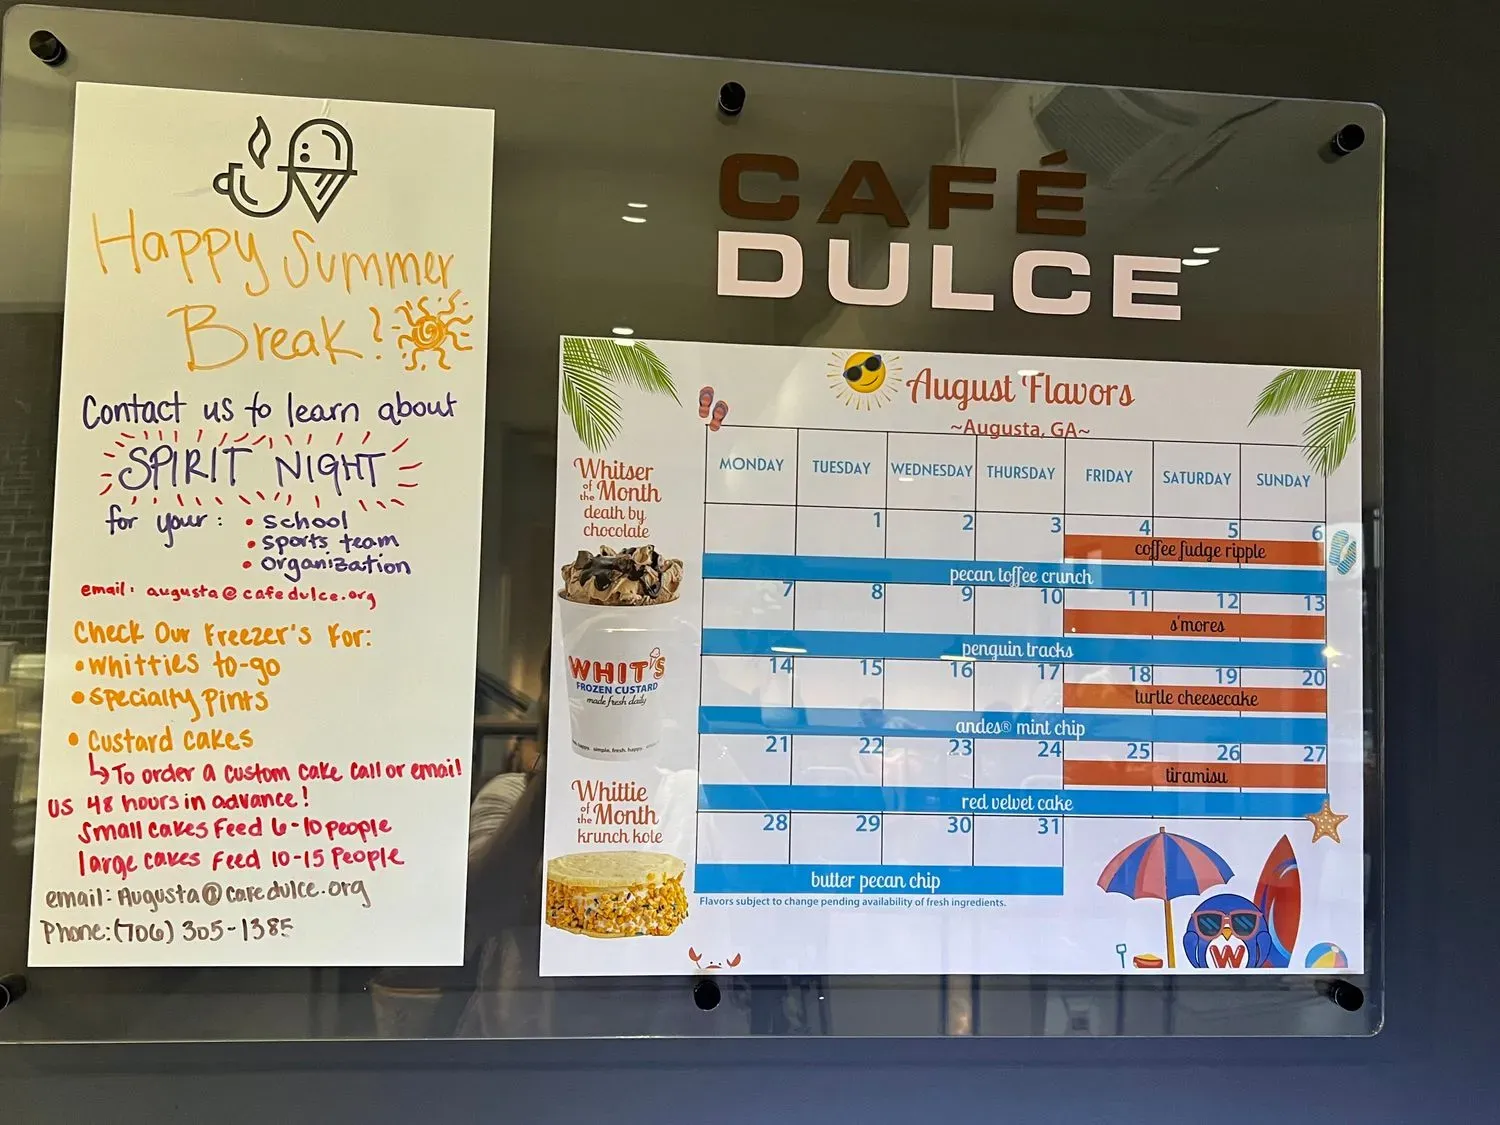 Happy Summer
Break!
Contact us to learn about
SPIRIT NIGHT
for your: • school
• sports team
• organization
email: augusta@cafedulce.org
Check Our Freezer's For:
• Whitties to-go
• Specialty Pints
• Custard cakes
↳ To order a custom cake call or email
us 48 hours in advance!
Small cakes Feed 6-10 people
large cakes Feed 10-15 People
email: Augusta@cafedulce.org
Phone: (706) 305-1385
CAFÉ
DULCE
August Flavors
~Augusta, GA~
Whitser
of the Month
death by
chocolate
WHIT'S
FROZEN CUSTARD
made fresh daily
simple. fresh. happy.
Whittie
of the Month
krunch kole
MONDAY TUESDAY WEDNESDAY THURSDAY FRIDAY SATURDAY SUNDAY
1 2 3 4 5 6
coffee fudge ripple
pecan toffee crunch
7 8 9 10 11 12 13
s'mores
penguin tracks
14 15 16 17 18 19 20
turtle cheesecake
andes® mint chip
21 22 23 24 25 26 27
tiramisu
red velvet cake
28 29 30 31
butter pecan chip
Flavors subject to change pending availability of fresh ingredients.
W